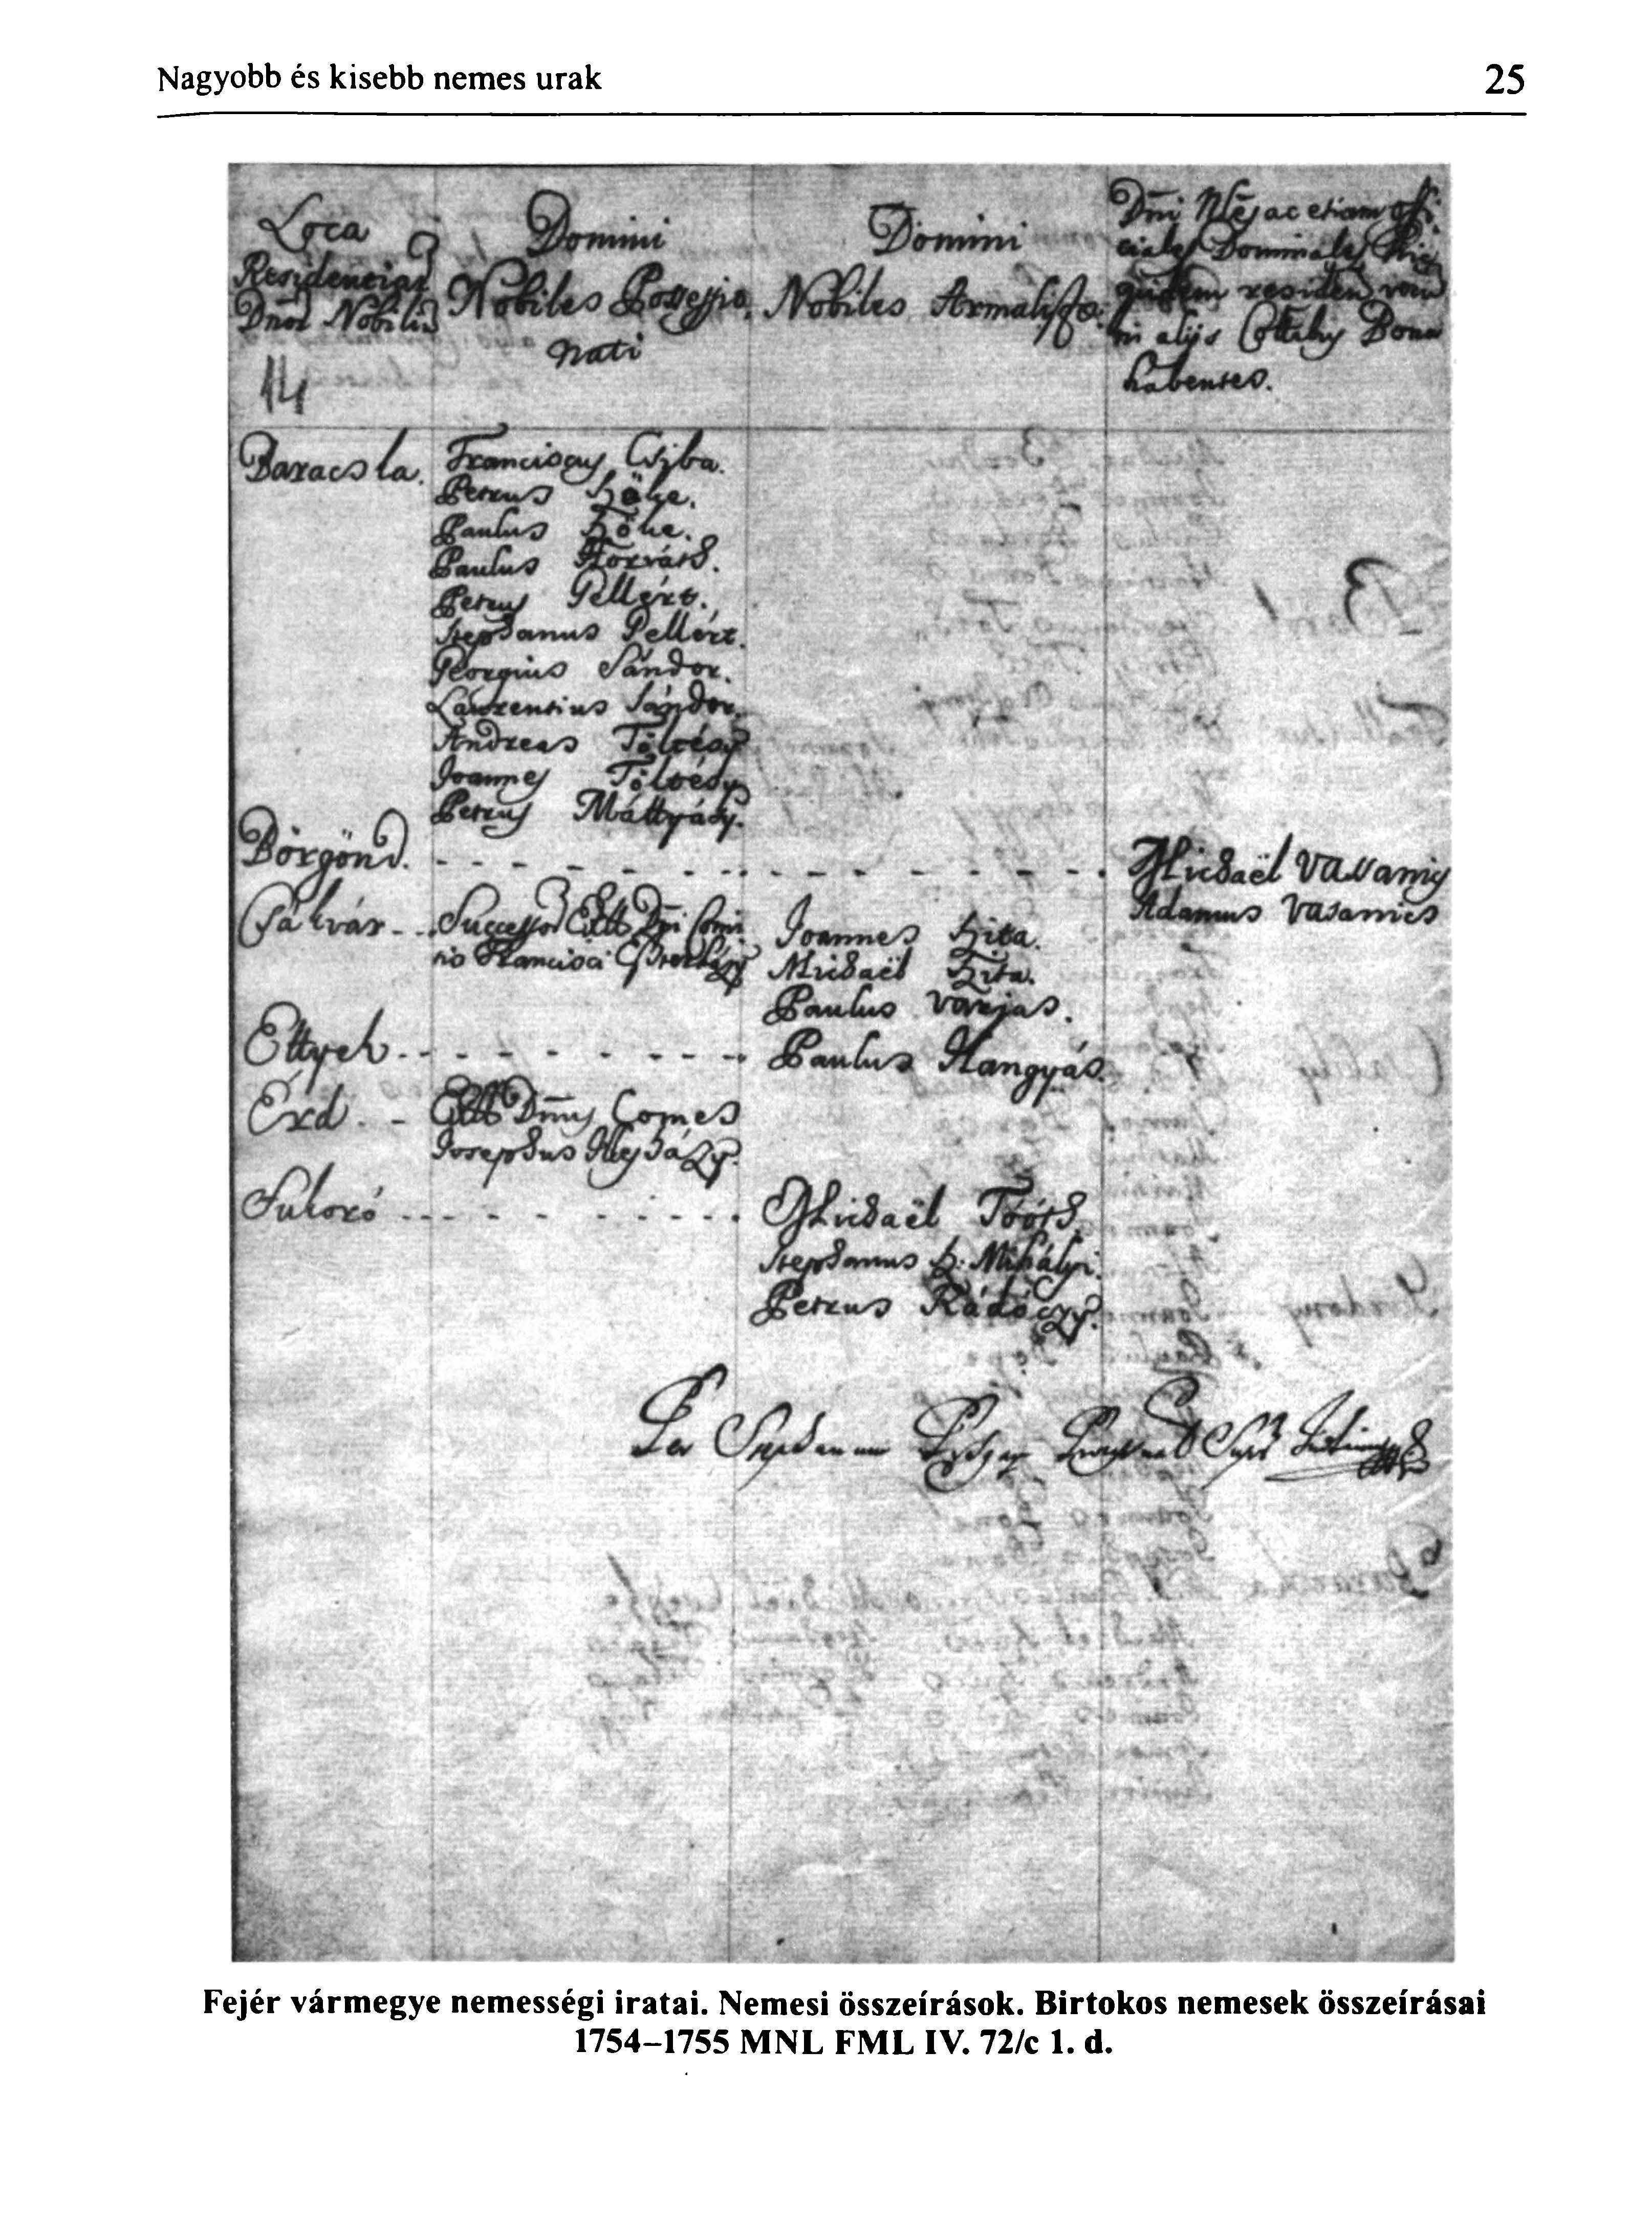 Nagyobb és kisebb nemes urak
25
Loca
Residentiae
Dnor Nobiliu
14
Domini
Nobiles Possessio
nati
Domini
Nobiles Armalistae
Dni Nles ac etiam offi
ciales Dominales Hic
quidem residen
in alijs Cottibus Bona
habentes.
Baracska.
Franciscus Csiba.
Petrus Szöke.
Paulus Szöke.
Paulus Horváth.
Petrus Pellért.
Stephanus Pellért.
Georgius Sándor.
Laurentius Sándor.
Andreas Töltésy
Joannes Töltésy
Petrus Máttyásy.
Börgönd.
Michaël Vasanics
Adamus Vasanics
Csákvár
Successor Exlt Dni Comi
tis Francisci Eszterházy
Joannes Szita.
Michaël Szita.
Paulus Varjas.
Ettyek
Paulus Hangyás.
Érd.
Exlt Dnus Comes
Josephus Illyésházy.
Sukoró
Michaël Tóóth
Stephanus Sz: Mihályi.
Petrus Rádóczy.
Per Stephanum
Fejér vármegye nemességi iratai. Nemesi összeírások. Birtokos nemesek összeírásai
1754–1755 MNL FML IV. 72/c 1. d.